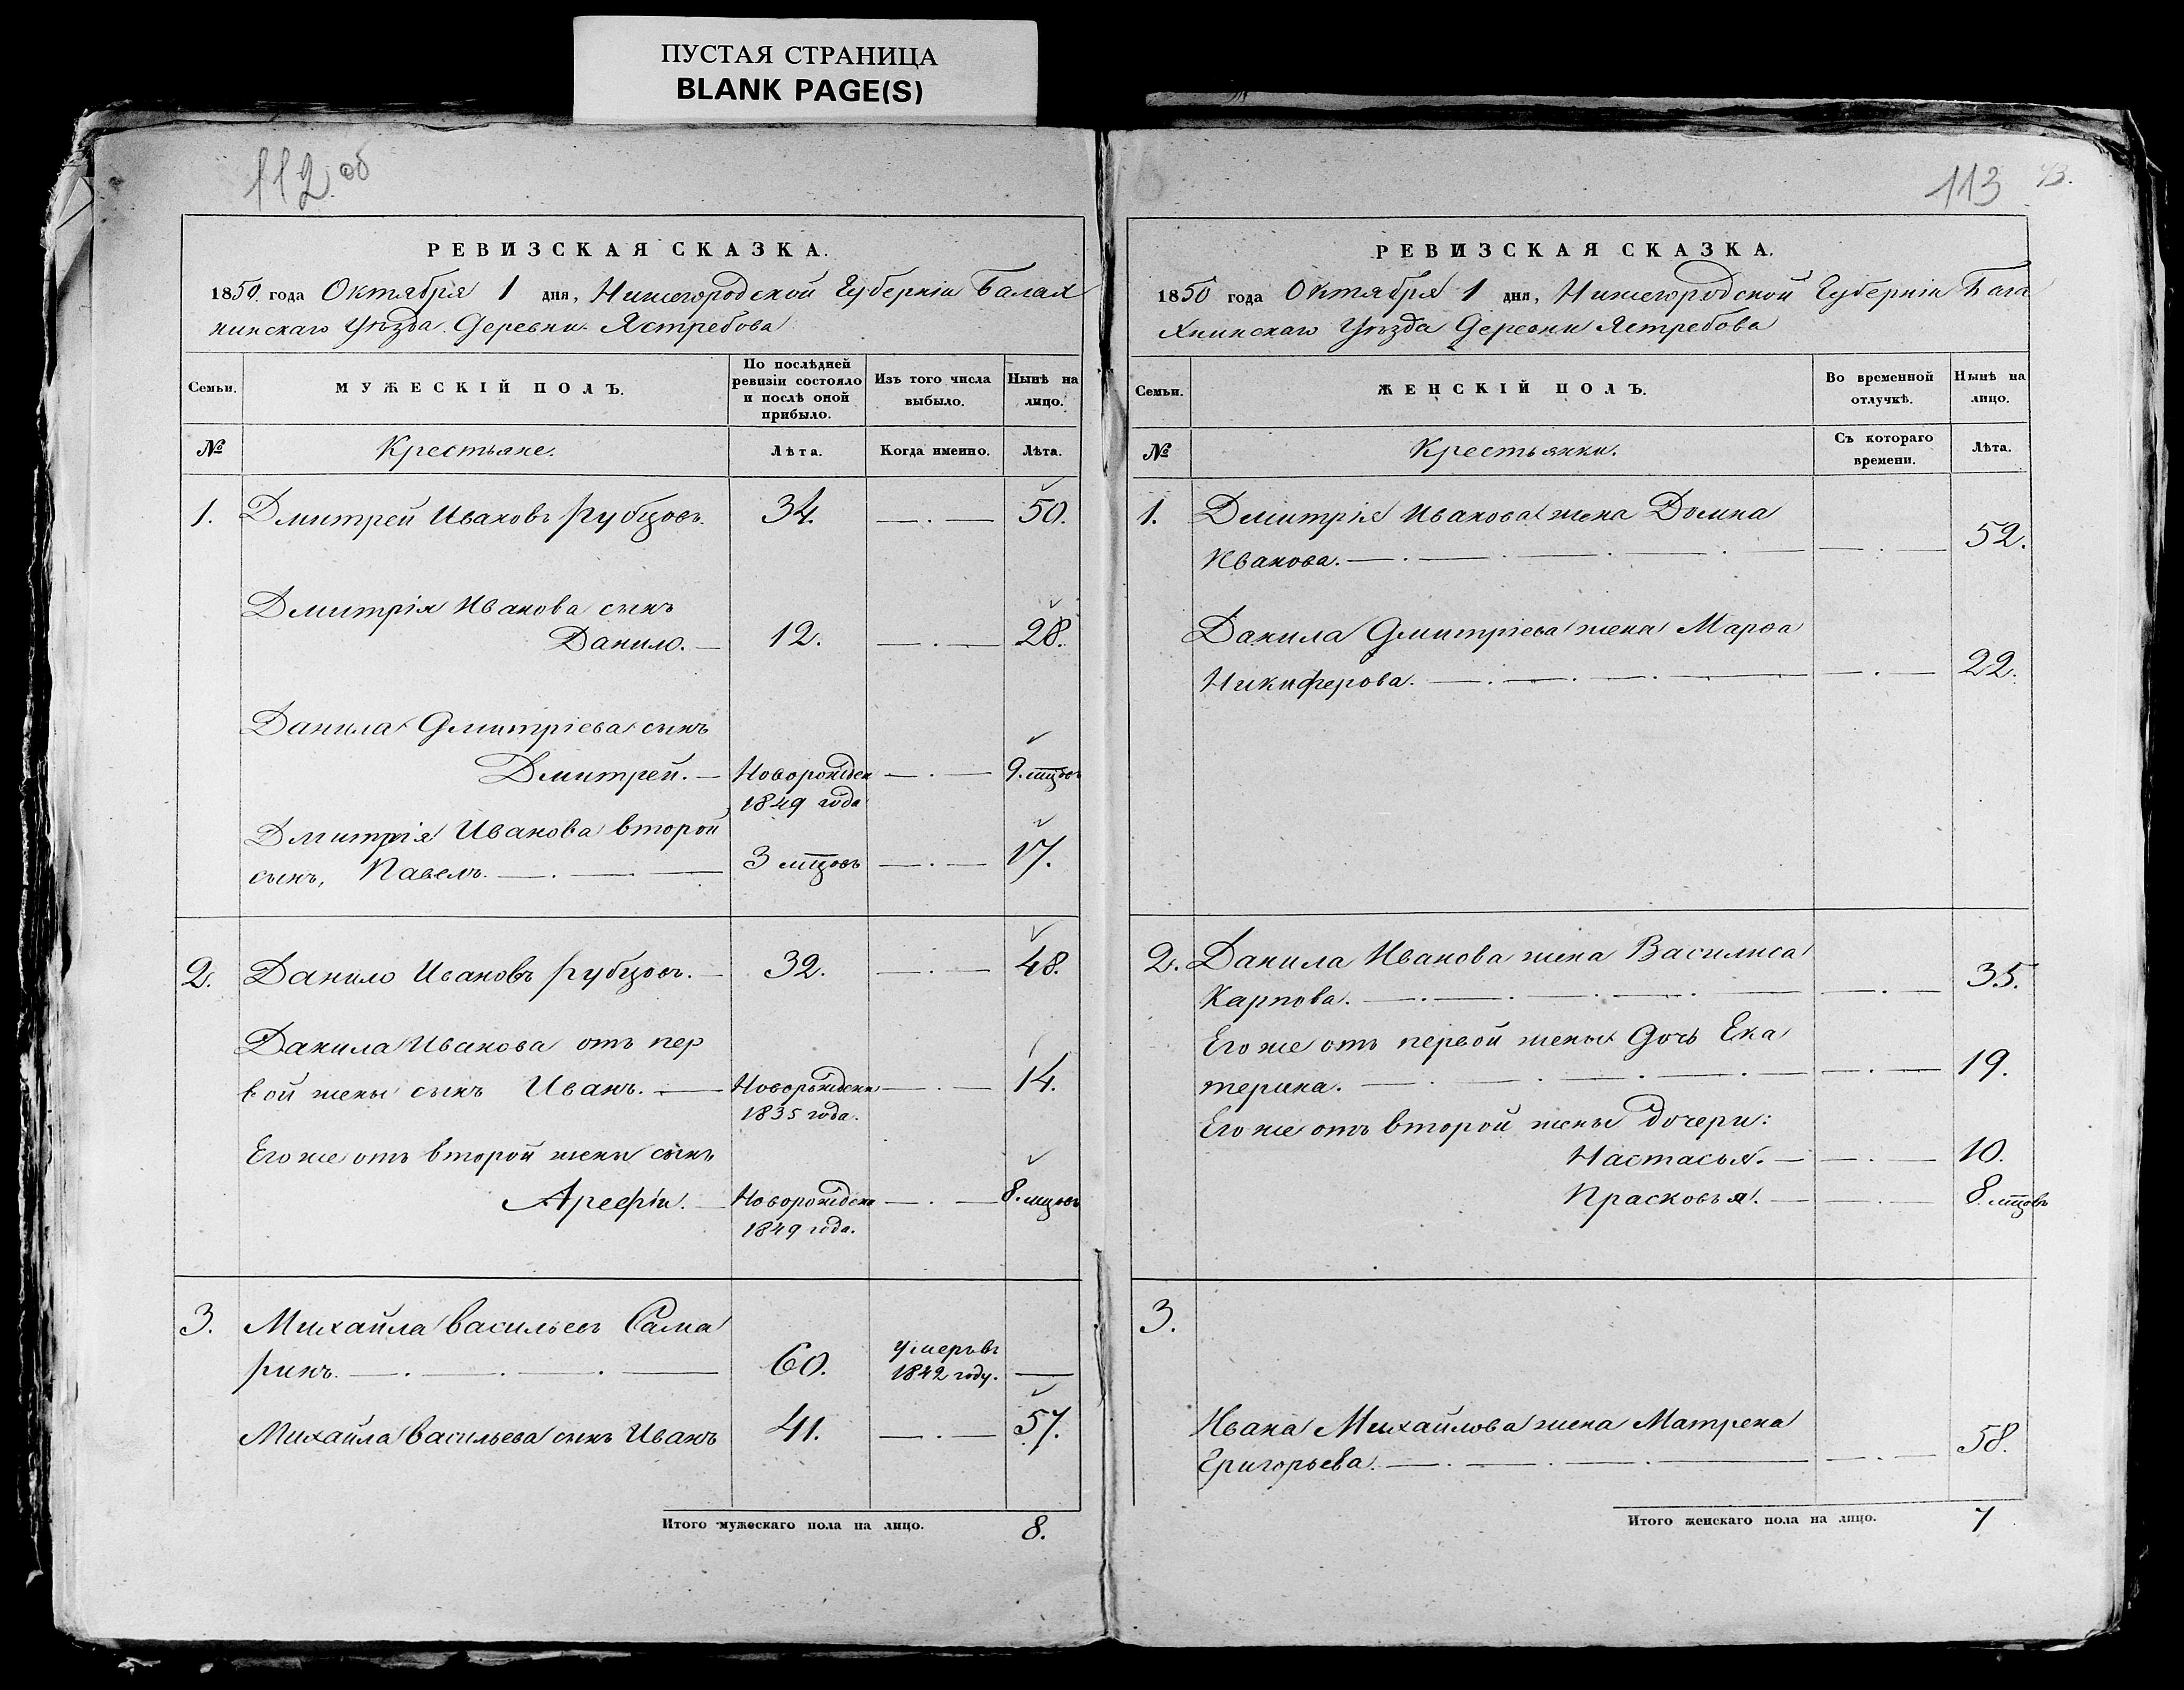 ПУСТАЯ СТРАНИЦА
BLANK PAGE(S)
112 об
РЕВИЗСКАЯ СКАЗКА.
1850 года Октября 1 дня, Нижегородской Губерніи Балах
нинскаго Уѣзда Деревни Ястребова
Семьи.
МУЖЕСКІЙ ПОЛЪ.
По послѣдней
ревизіи состояло
и послѣ оной
прибыло.
Изъ того числа
выбыло.
Нынѣ на
лицо.
№
Крестьяне.
Лѣта.
Когда именно.
Лѣта.
1. Дмитрей Ивановъ Рубцовъ. 34. —.— 50.
Дмитрія Иванова сынъ
Данило. — 12. —.— 28.
Данила Дмитріева сынъ
Дмитрей. — Новорожден —.— 9. мцовъ
1849 года
Дмитрія Иванова второй
сынъ, Павелъ. —.—.— 3 мцовъ —.— 17.
2. Данило Ивановъ Рубцовъ. — 32. —.— 48.
Данила Иванова отъ пер
вой жены сынъ Иванъ. — Новорожденъ —.— 14.
1835 года.
Его же отъ второй жены сынъ
Арефій. — Новорожденъ —.— 8. мцовъ
1849 года.
3. Михайла Васильевъ Сама
ринъ. —.—.—.— 60. умеръ въ
1842 году. —
Михайла Васильева сынъ Иванъ 41. —.— 57.
Итого мужескаго пола на лицо. 8.
113 43.
РЕВИЗСКАЯ СКАЗКА.
1850 года Октября 1 дня, Нижегородской Губерніи Бала
хнинскаго Уѣзда Деревни Ястребова
Семьи.
ЖЕНСКІЙ ПОЛЪ.
Во временной
отлучкѣ.
Нынѣ на
лицо.
№
Крестьянки.
Съ котораго
времени.
Лѣта.
1. Дмитрія Иванова жена Домна
Иванова. —.—.—.—.— —.— 52.
Данила Дмитріева жена Марѳа
Никиферова. —.—.—.— —.— 22.
2. Данила Иванова жена Василиса
Карпова. —.—.—.—.— —.— 35.
Его же отъ первой жены дочь Ека
терина. —.—.—.— —.— 19.
Его же отъ второй жены дочери:
Настасья. — —.— 10.
Прасковья. — —.— 8. мцовъ
3.
Ивана Михайлова жена Матрена
Григорьева. —.—.—.— —.— 58.
Итого женскаго пола на лицо. 7